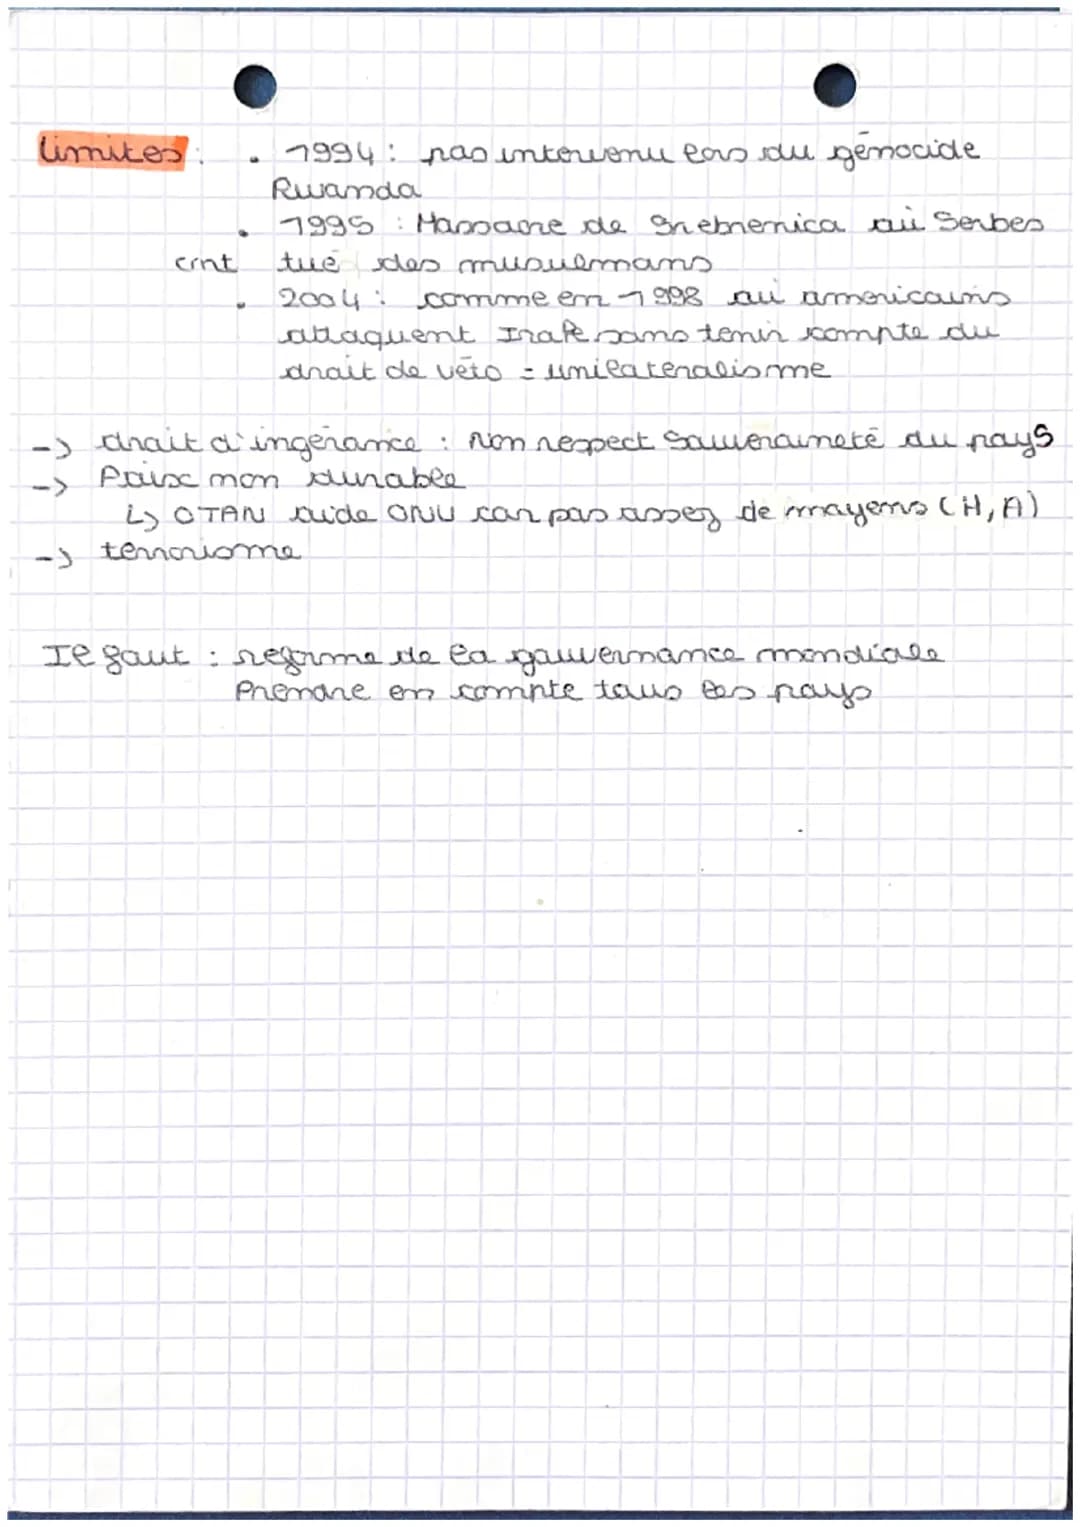 limites : • 1994 : pas intervenu lors du génocide
Rwanda
• 1995 : Massacre de Srebrenica où Serbes
ont tué des musulmans
• 2004 : comme en 1998 où américains
attaquent Irak sans tenir compte du
droit de véto = unilateralisme
-> droit d'ingérance : Non respect Souveraineté du pays
-> Paix non durable
↳ OTAN aide ONU car pas assez de moyens (H, A)
-> terrorisme
Il faut : reforme de la gouvernance mondiale
Prendre en compte tous les pays